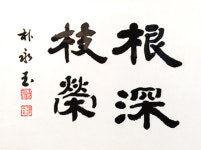 根深
枝榮
朴永玉